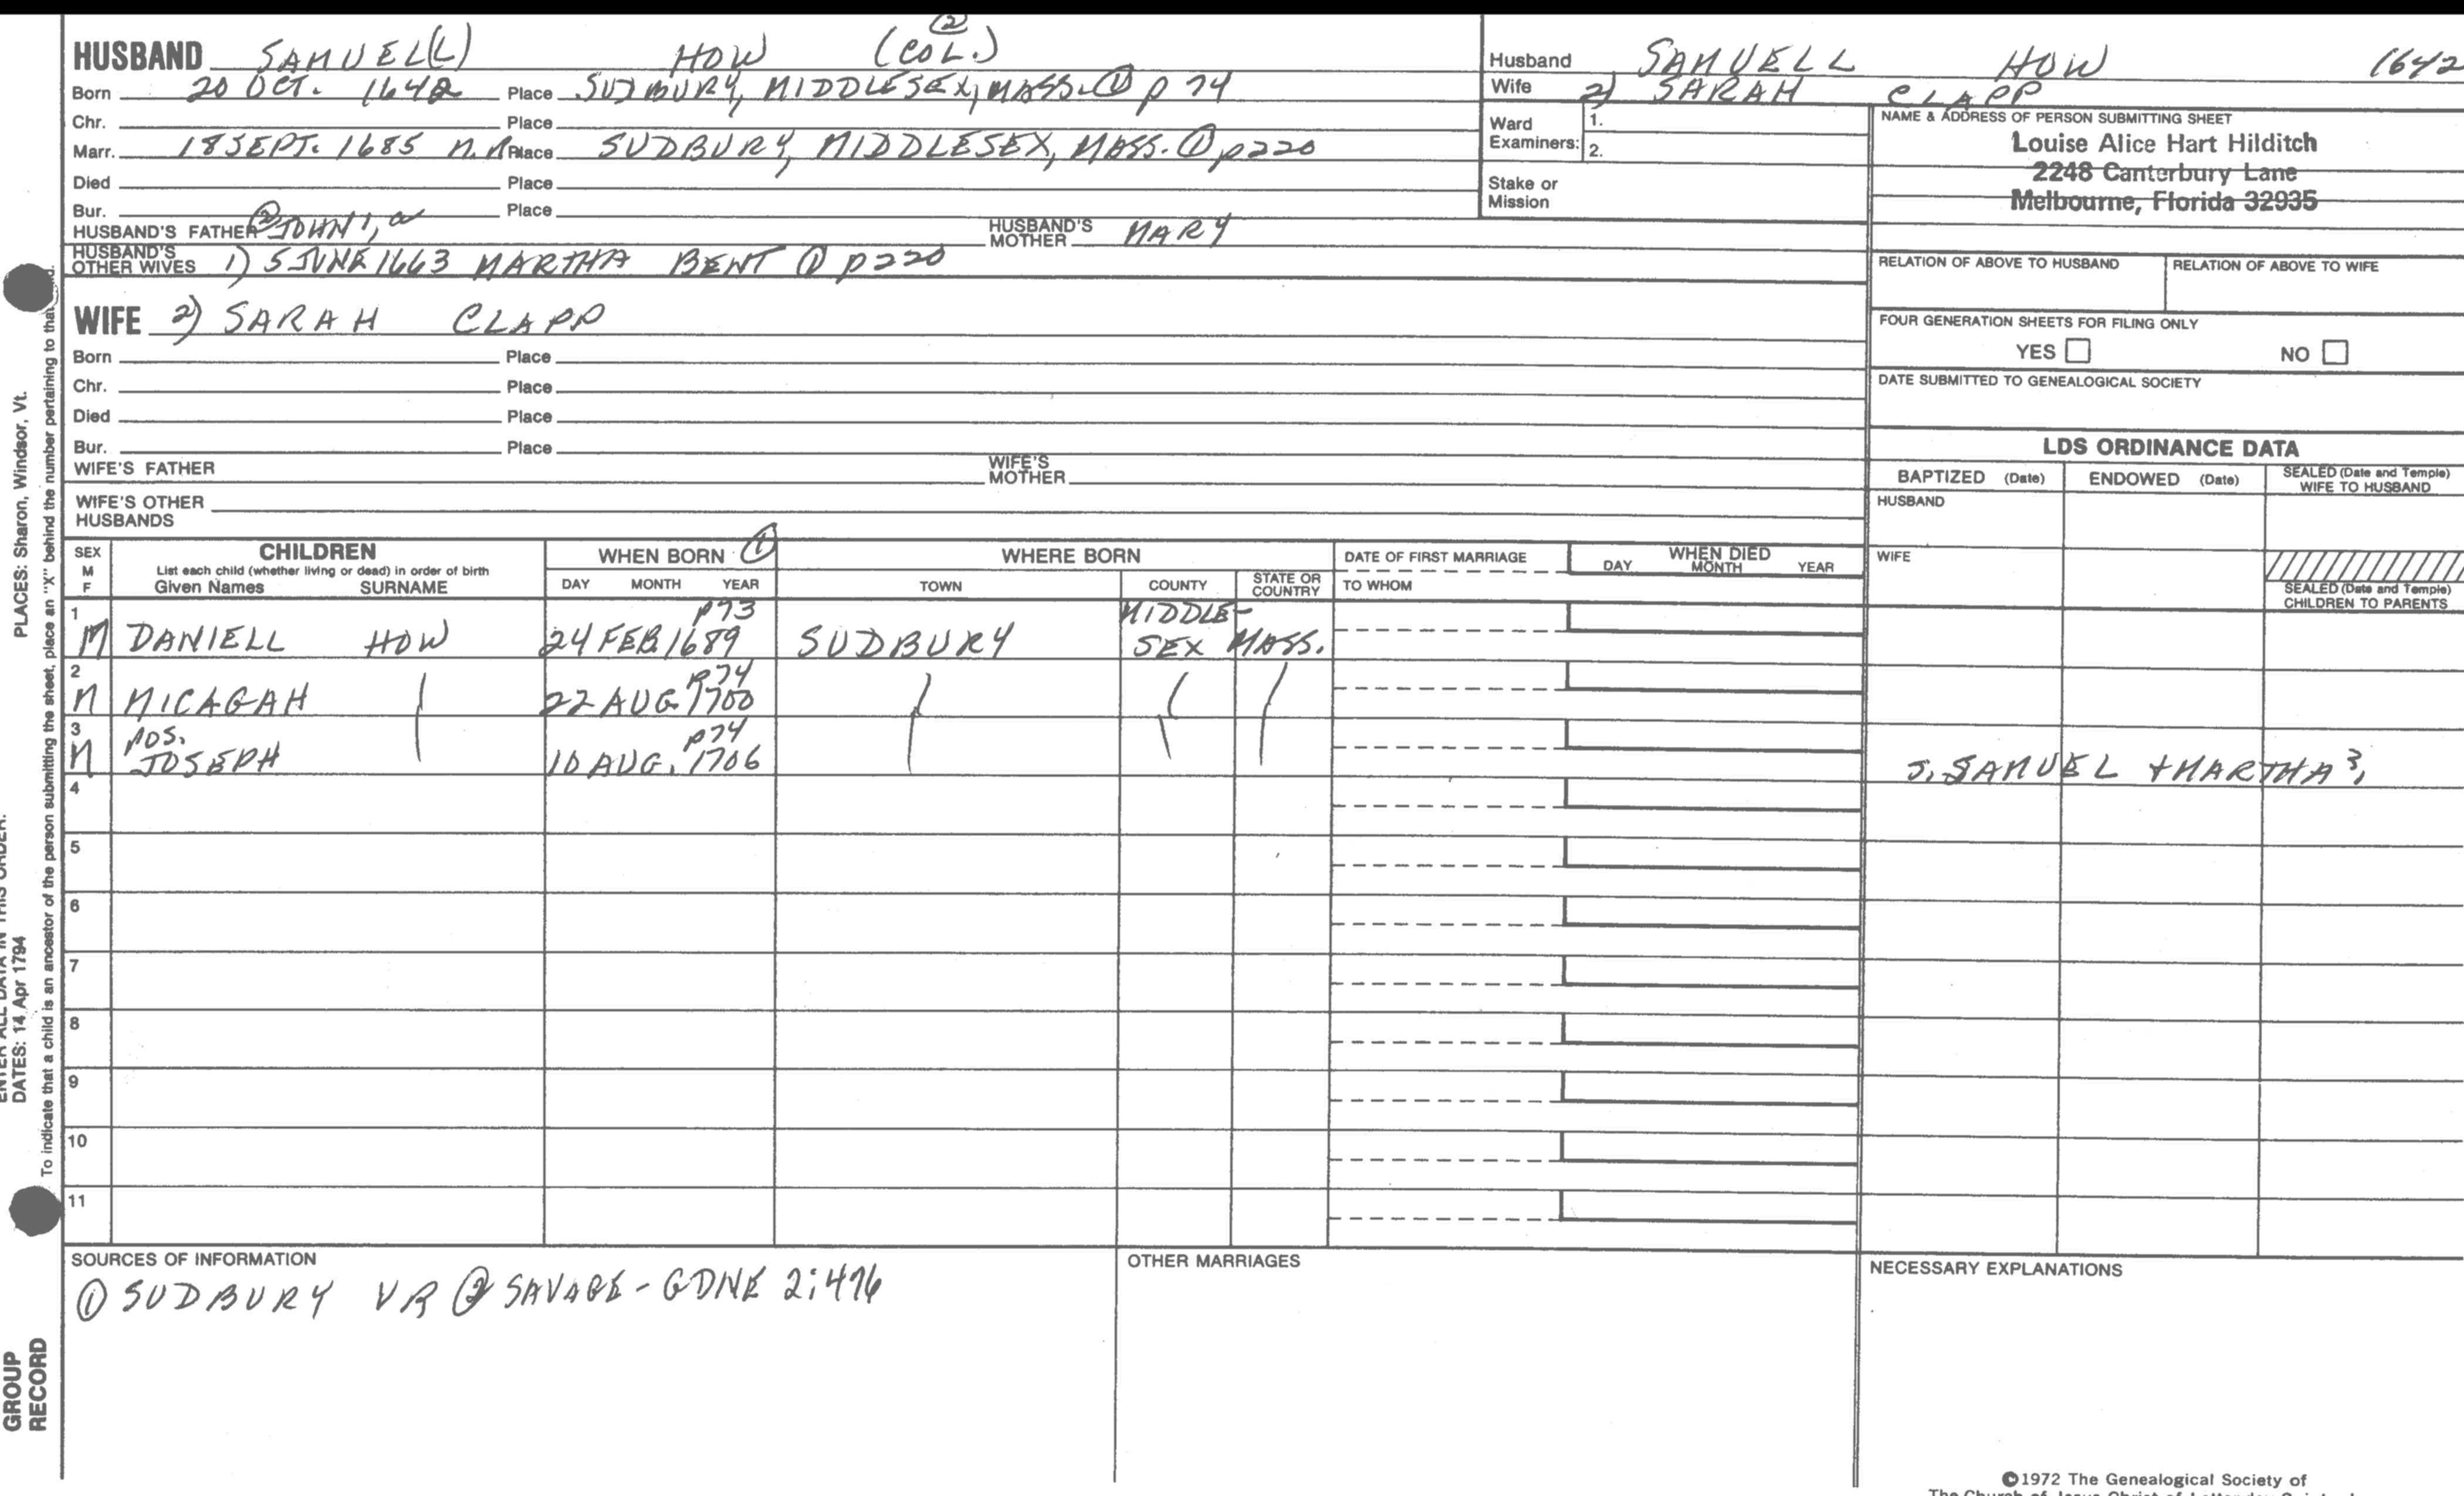 HUSBAND SAMUEL(L) HOW (COL.) ②
Born 20 OCT. 1642 Place SUDBURY, MIDDLESEX, MASS. ① p 74
Chr. Place
Marr. 18 SEPT. 1685 Place SUDBURY, MIDDLESEX, MASS. ① p220
Died Place
Bur. Place
HUSBAND'S FATHER ② JOHN 1, HUSBAND'S MOTHER MARY
HUSBAND'S OTHER WIVES 1) 5 JUNE 1663 MARTHA BENT ① p220
WIFE 2) SARAH CLAPP
Born Place
Chr. Place
Died Place
Bur. Place
WIFE'S FATHER WIFE'S MOTHER
WIFE'S OTHER HUSBANDS
Husband SAMUELL HOW 1642
Wife 2) SARAH CLAPP
Ward Examiners: 1.
2.
Stake or Mission
NAME & ADDRESS OF PERSON SUBMITTING SHEET
Louise Alice Hart Hilditch
2248 Canterbury Lane
Melbourne, Florida 32935
RELATION OF ABOVE TO HUSBAND RELATION OF ABOVE TO WIFE
FOUR GENERATION SHEETS FOR FILING ONLY
YES NO
DATE SUBMITTED TO GENEALOGICAL SOCIETY
LDS ORDINANCE DATA
BAPTIZED (Date) ENDOWED (Date) SEALED (Date and Temple) WIFE TO HUSBAND
HUSBAND
WIFE
SEALED (Date and Temple) CHILDREN TO PARENTS
SEX M F CHILDREN WHEN BORN ① WHERE BORN DATE OF FIRST MARRIAGE WHEN DIED
List each child (whether living or dead) in order of birth
Given Names SURNAME DAY MONTH YEAR TOWN COUNTY STATE OR COUNTRY TO WHOM DAY MONTH YEAR
1 p73 MIDDLE-
M DANIELL HOW 24 FEB. 1689 SUDBURY SEX MASS.
2 p74
M MICAGAH 22 AUG. 1700
3 POS. p74
M JOSEPH 10 AUG. 1706 SAMUEL + MARTHA 3,
4
5
6
7
8
9
10
11
SOURCES OF INFORMATION
① SUDBURY VR ② SAVAGE - GDNE 2:476
OTHER MARRIAGES
NECESSARY EXPLANATIONS
©1972 The Genealogical Society of
PLACES: Sharon, Windsor, Vt.
DATES: 14 Apr 1794
To indicate that a child is an ancestor of the person submitting the sheet, place an "X" behind the number pertaining to that
GROUP
RECORD